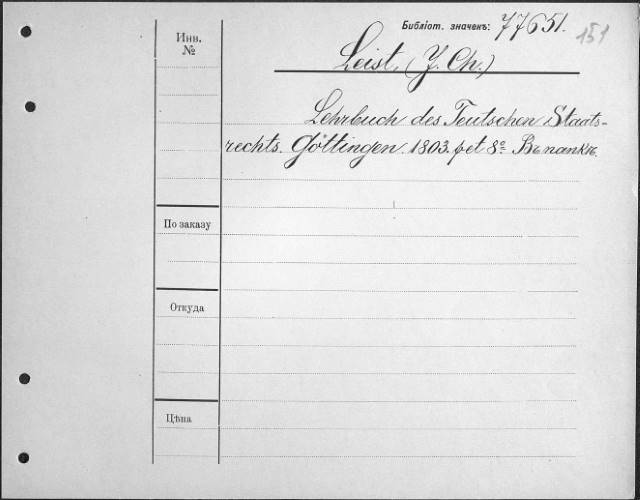 Библіот. значекъ: 77651. 151
Инв.
№
Leist, (J. Ch.)
Lehrbuch des Teutschen Staats-
rechts. Göttingen. 1803. pet 8º Въ папкѣ.
По заказу
Откуда
Цѣна